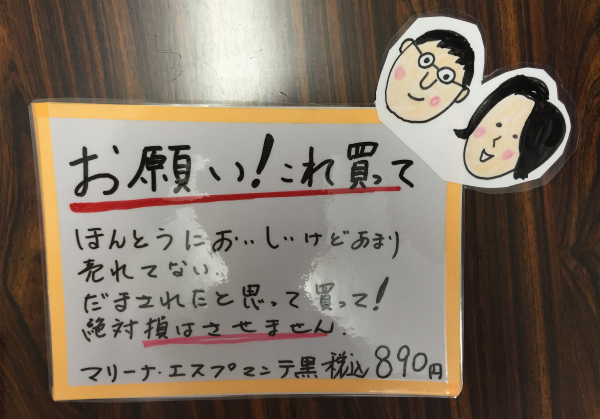 お願い!これ買って
ほんとうにおいしいけどあまり
売れてない。
だまされたと思って買って!
絶対損はさせません.
マリーナ・エスプマンテ黒 税込890円